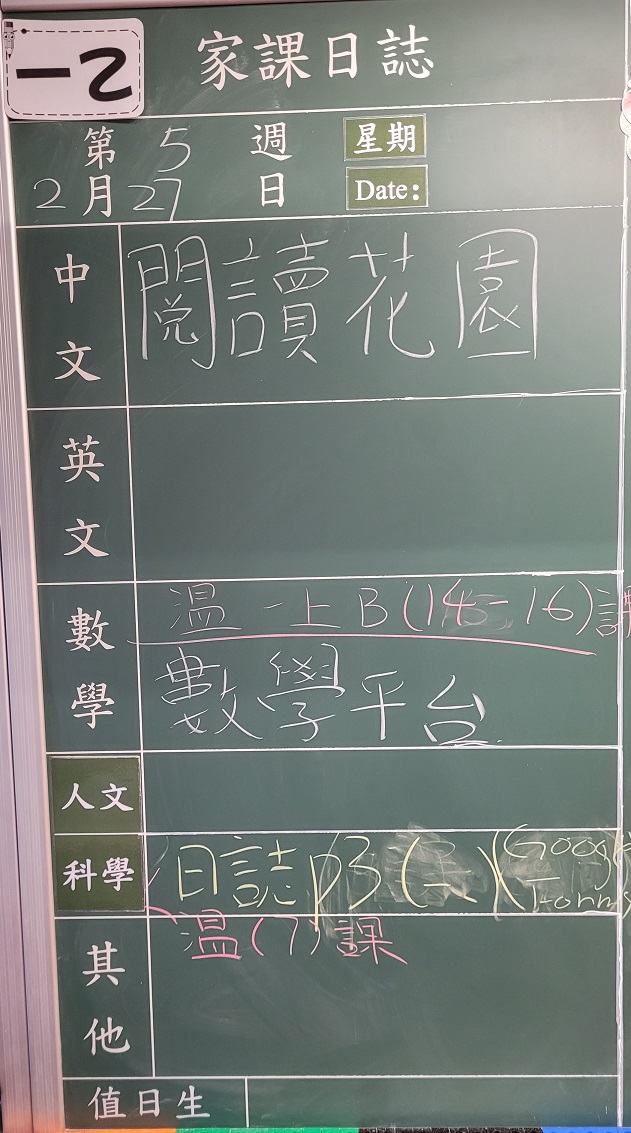 一2
家課日誌
第 5 週 星期
2月27日 Date:
中文 閱讀花園
英文
數學 溫 一上B(14-16)課
數學平台
人文
科學 日誌p3 (Google
Forms
溫(7)課
其他
值日生